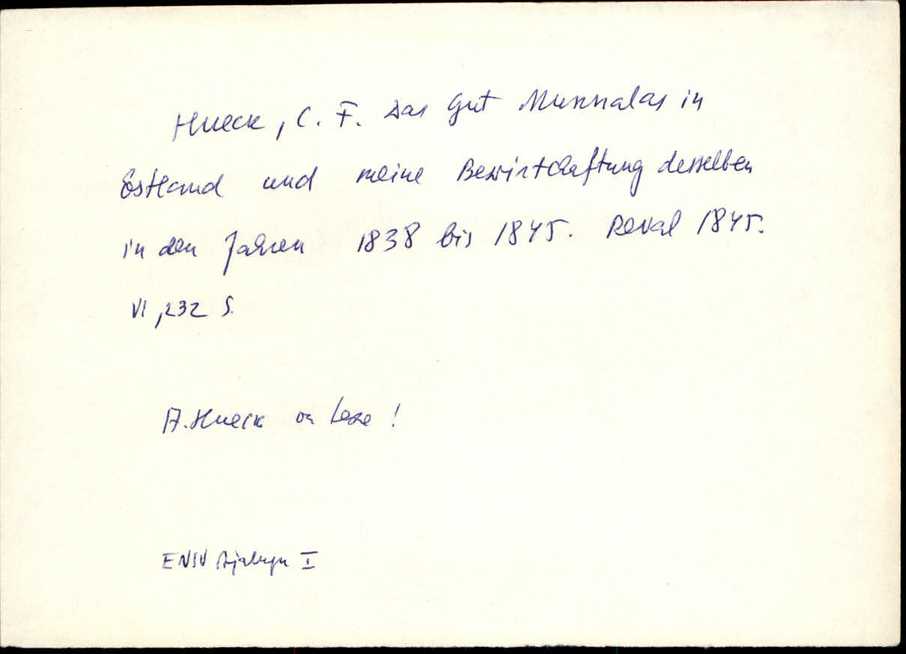 Hueck, C. F. Das Gut Munnalas in
Estland und meine Bewirtschaftung desselben
in den Jahren 1838 bis 1845. Reval 1845.
VI, 232 S.
A. Hueck on teine!
ENSV Ajalugu I